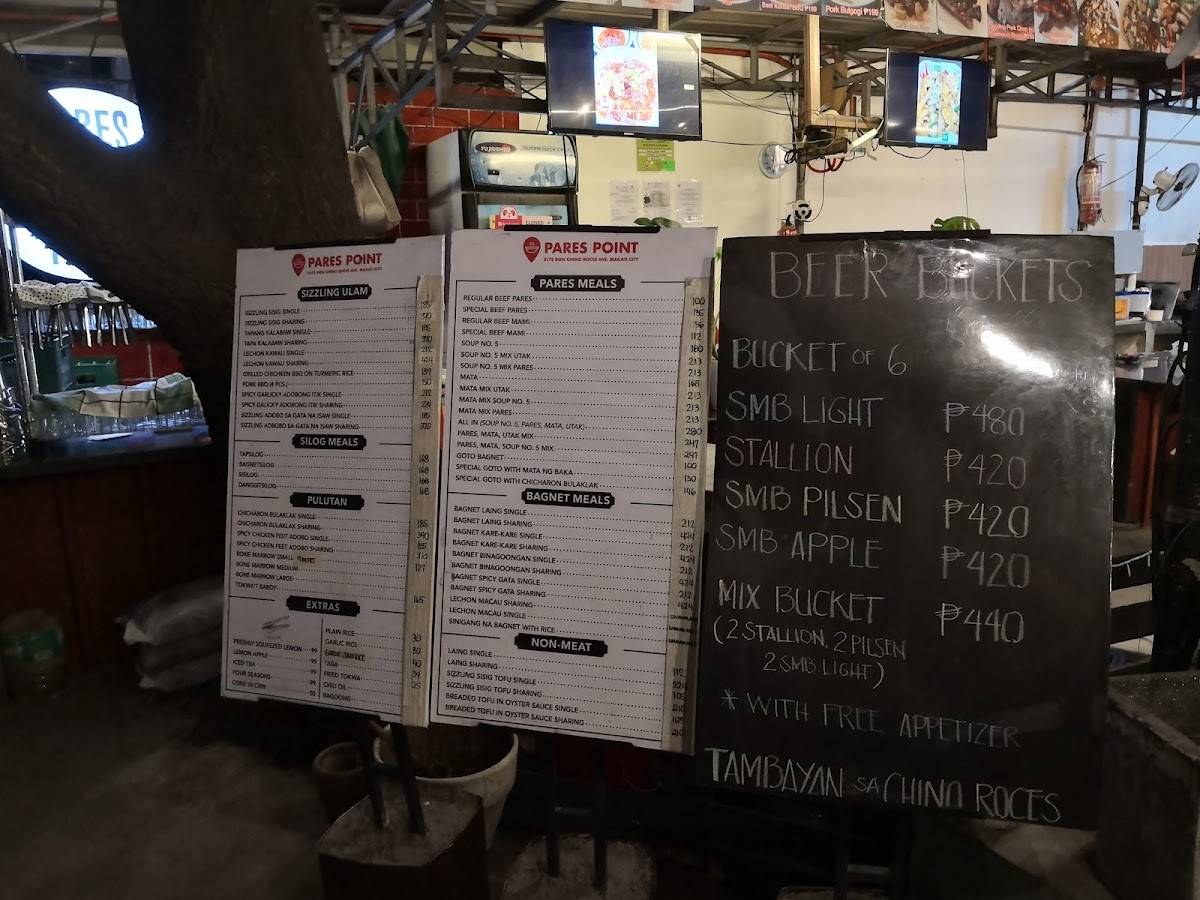 Beef Korean BBQ ₱199
Pork Bulgogi ₱199
FUJIDENZO
PARES POINT
2175 DON CHINO ROCES AVE. MAKATI CITY
SIZZLING ULAM
SIZZLING SISIG SINGLE
SIZZLING SISIG SHARING 370
TAPANG KALABAW SINGLE 185
TAPA KALABAW SHARING 370
LECHON KAWALI SINGLE 212
LECHON KAWALI SHARING 424
GRILLED CHICKEN BBQ ON TURMERIC RICE 189
PORK BBQ (4 PCS.) 150
SPICY GARLICKY ADOBONG ITIK SINGLE 212
SPICY GALICKY ADOBONG ITIK SHARING 424
SIZZLING ADOBO SA GATA NA ISAW SINGLE 185
SIZZLING ADOBO SA GATA NA ISAW SHARING 370
SILOG MEALS
TAPSILOG 168
BAGNETSILOG 168
SISILOG 168
DANGGITSILOG 168
PULUTAN
CHICHARON BULAKLAK SINGLE 185
CHICHARON BULAKLAK SHARING 390
SPICY CHICKEN FEET ADOBO SINGLE 185
SPICY CHICKEN FEET ADOBO SHARING 370
BONE MARROW SMALL 127
BONE MARROW MEDIUM
BONE MARROW LARGE
TOKWA'T BABOY 165
EXTRAS
FRESHLY SQUEEZED LEMON 99
LEMON APPLE 99
ICED TEA 99
FOUR SEASONS 99
COKE IN CAN 55
PLAIN RICE 30
GARLIC RICE
TABA
FRIED TOKWA
CHILI OIL
BAGOONG
PARES POINT
2175 DON CHINO ROCES AVE. MAKATI CITY
PARES MEALS
REGULAR BEEF PARES 100
SPECIAL BEEF PARES 135
REGULAR BEEF MAMI 96
SPECIAL BEEF MAMI 112
SOUP NO. 5 180
SOUP NO. 5 MIX UTAK 213
SOUP NO. 5 MIX PARES 213
MATA 168
MATA MIX UTAK 213
MATA MIX SOUP NO. 5 213
MATA MIX PARES 213
ALL IN (SOUP NO. 5, PARES, MATA, UTAK) 280
PARES, MATA, UTAK MIX 247
PARES, MATA, SOUP NO. 5 MIX 247
GOTO BAGNET 100
SPECIAL GOTO WITH MATA NG BAKA 130
SPECIAL GOTO WITH CHICHARON BULAKLAK 146
BAGNET MEALS
BAGNET LAING SINGLE 212
BAGNET LAING SHARING 424
BAGNET KARE-KARE SINGLE 212
BAGNET KARE-KARE SHARING 424
BAGNET BINAGOONGAN SINGLE 212
BAGNET BINAGOONGAN SHARING 424
BAGNET SPICY GATA SINGLE 212
BAGNET SPICY GATA SHARING 424
LECHON MACAU SHARING
LECHON MACAU SINGLE
SINIGANG NA BAGNET WITH RICE
NON-MEAT
LAING SINGLE 112
LAING SHARING 224
SIZZLING SISIG TOFU SINGLE 105
SIZZLING SISIG TOFU SHARING 210
BREADED TOFU IN OYSTER SAUCE SINGLE 105
BREADED TOFU IN OYSTER SAUCE SHARING 210
BEER BUCKETS
BUCKET OF 6
SMB LIGHT ₱480
STALLION ₱420
SMB PILSEN ₱420
SMB APPLE ₱420
MIX BUCKET ₱440
(2 STALLION, 2 PILSEN
2 SMB LIGHT)
* WITH FREE APPETIZER
TAMBAYAN SA CHINO ROCES